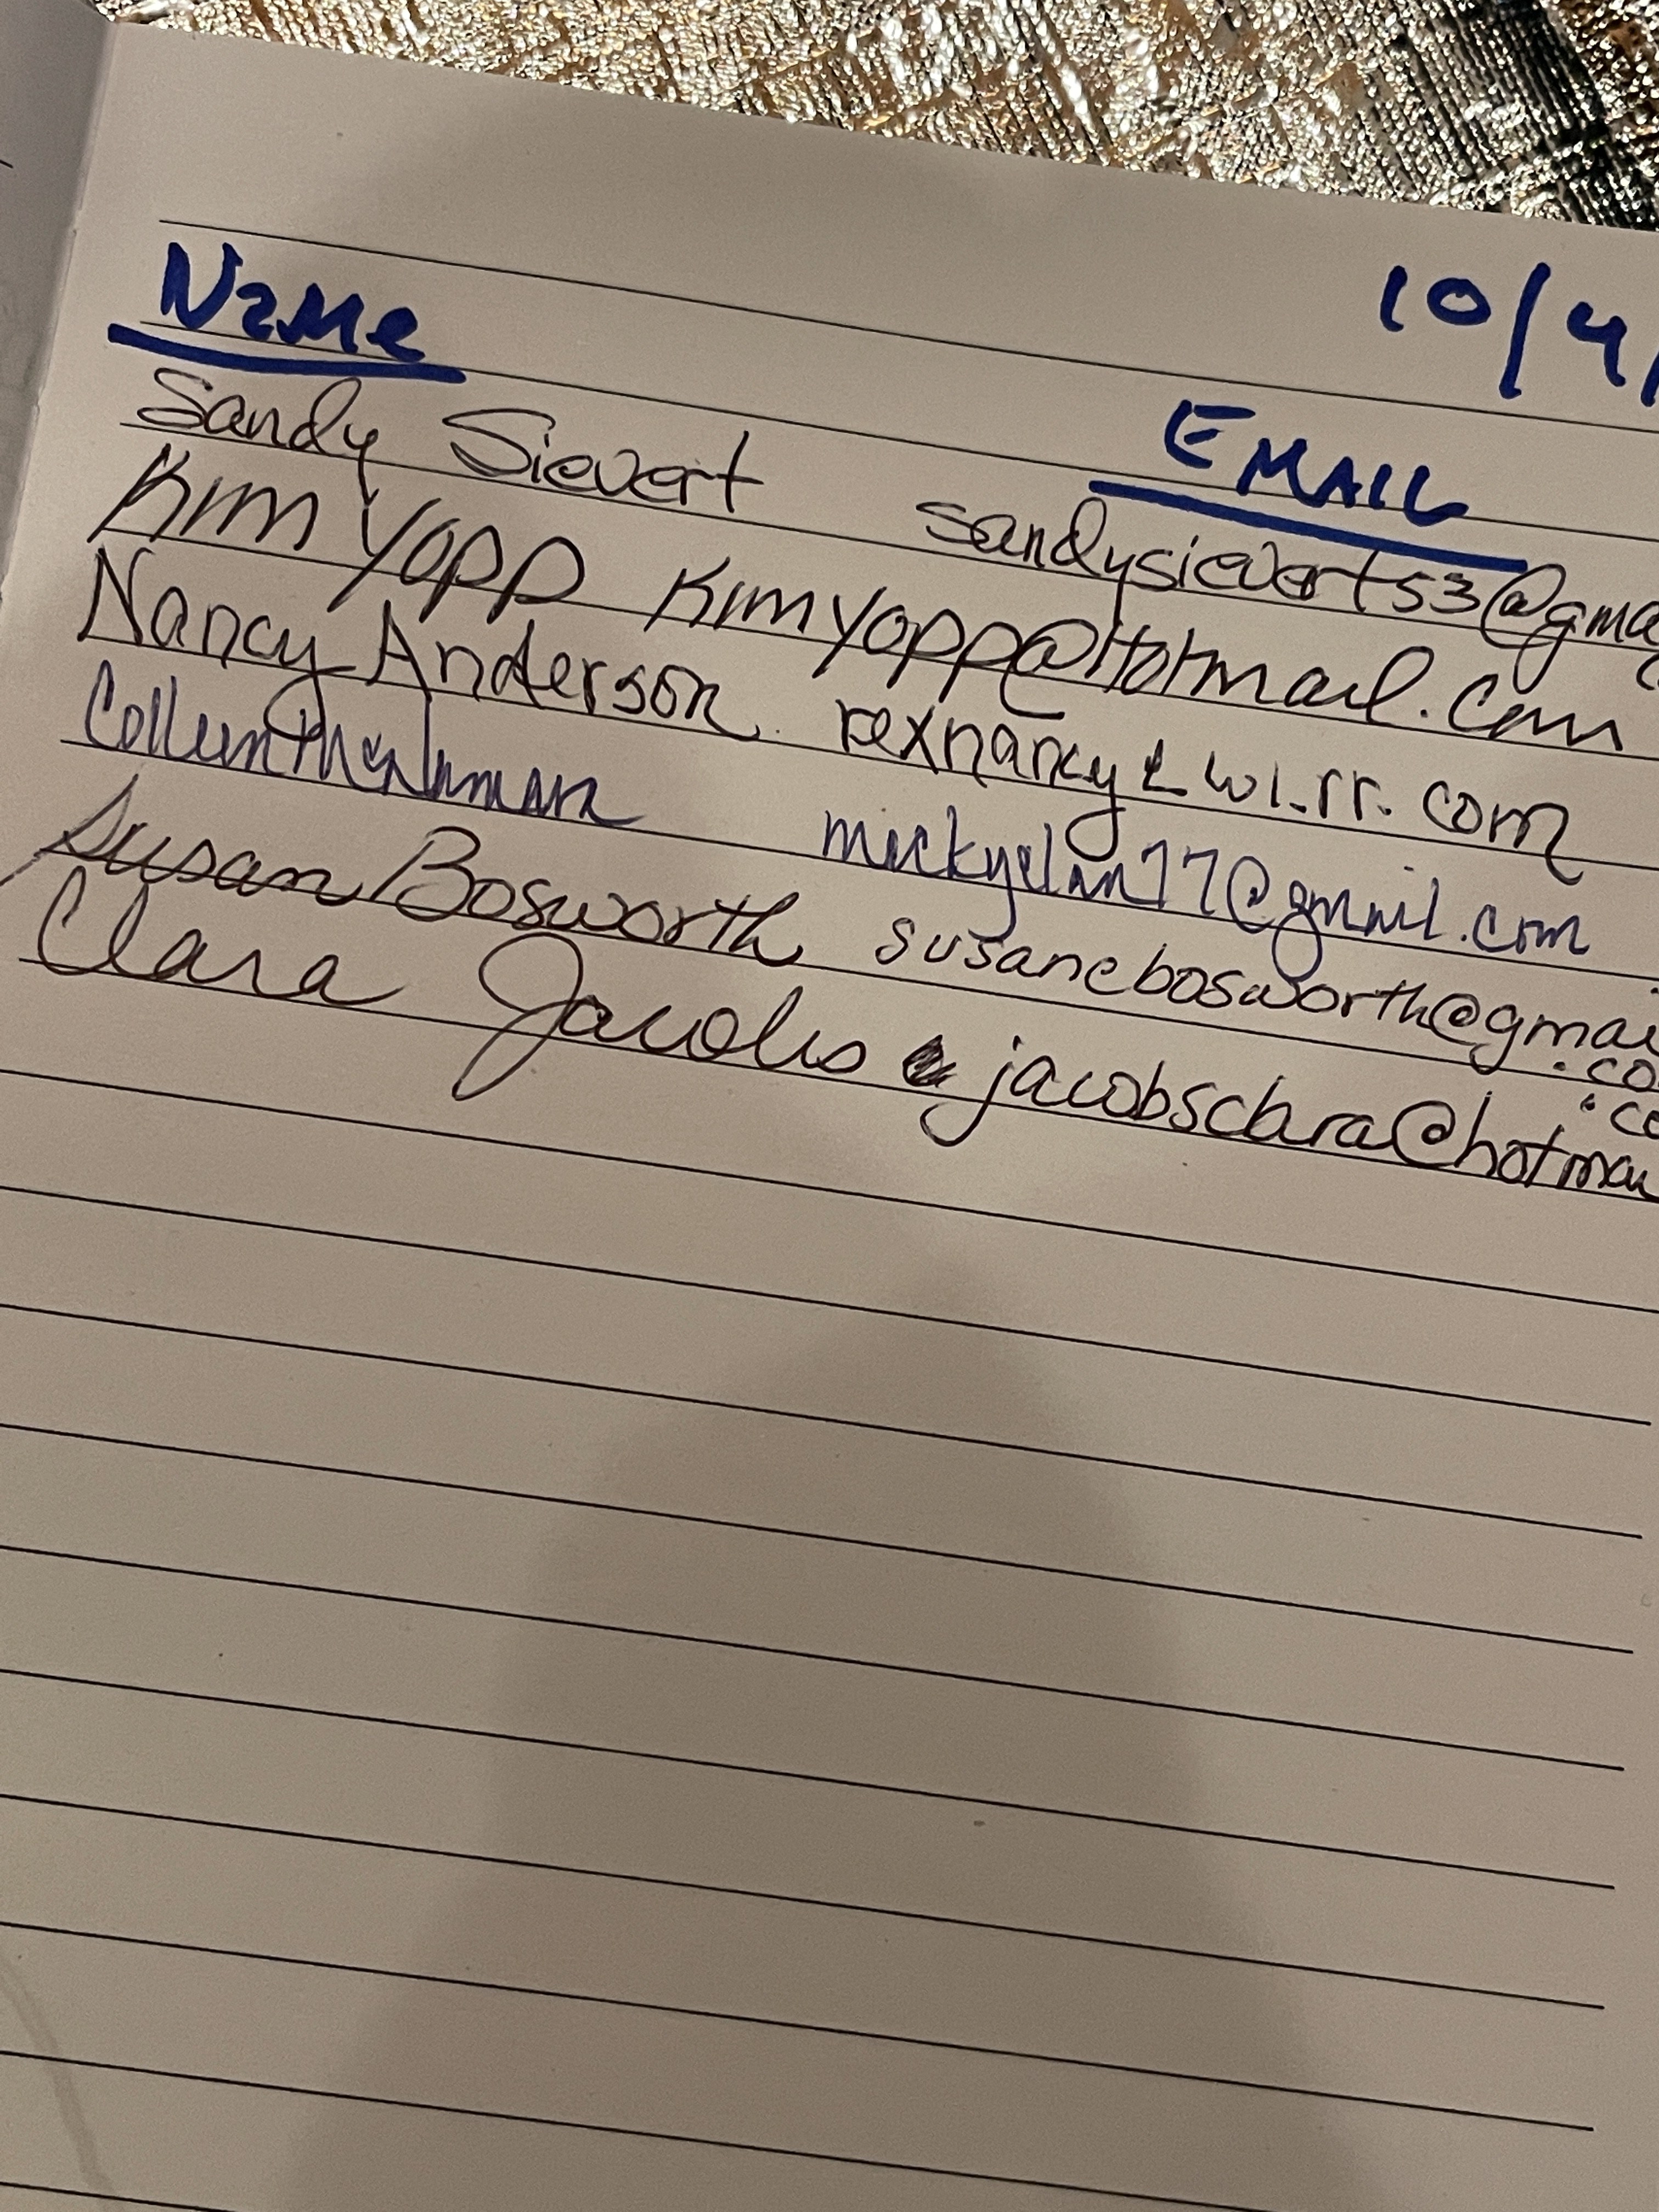 10/4/
Name EMAIL
Sandy Sievert sandysievert53@gma
Kim Yopp Kimyopp@Hotmail.com
Nancy Anderson rexnancy@wi.rr.com
Colleen
Susan Bosworth susanebosworth@gmai
.co
Clara Jacobs jacobsclara@hotmai
.co